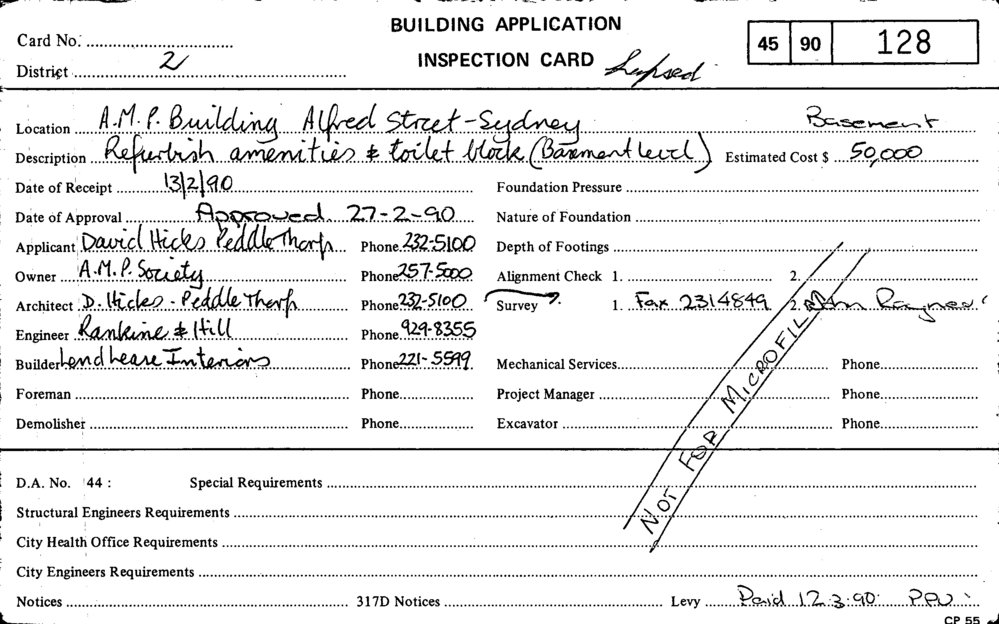 BUILDING APPLICATION
Card No. 45 90 128
INSPECTION CARD Lapsed
District 2
Location A.M.P. Building Alfred Street - Sydney Basement
Description Refurbish amenities & toilet block (Basement level) Estimated Cost $ 50,000
Date of Receipt 13/2/90 Foundation Pressure
Date of Approval Approved 27-2-90 Nature of Foundation
Applicant David Hicks Peddle Thorp Phone 232-5100 Depth of Footings
Owner A.M.P. Society Phone 257-5000 Alignment Check 1. 2.
Architect D. Hicks - Peddle Thorp Phone 232-5100 Survey 1. Fax 2314849 2.
Engineer Rankine & Hill Phone 929-8355
Builder Lend Lease Interiors Phone 221-5599 Mechanical Services Phone
Foreman Phone Project Manager Phone
Demolisher Phone Excavator Phone
NOT FOR MICROFILM
D.A. No. 44 : Special Requirements
Structural Engineers Requirements
City Health Office Requirements
City Engineers Requirements
Notices 317D Notices Levy Paid 12.3.90
CP 55